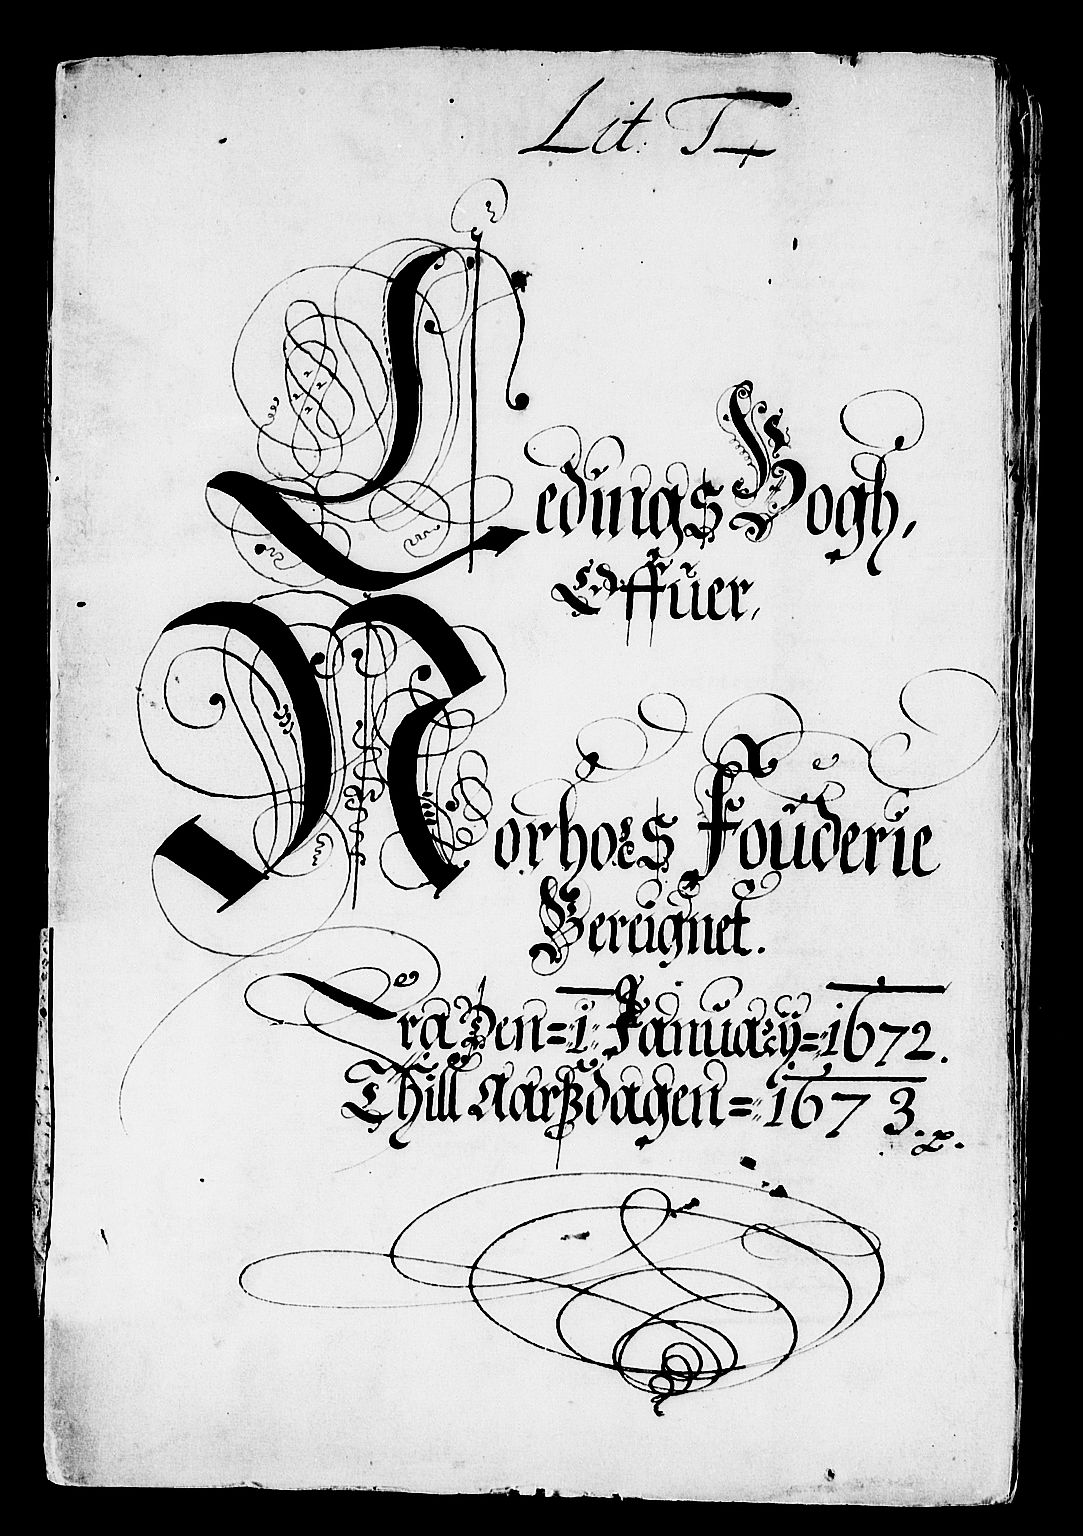 Lit: T
Ledings Bogh,
Offuer,
Norhoes Fouderie
Bereignet.
Fra Den = 1 Januarij = 1672.
Thill Aarsdagen = 1673.